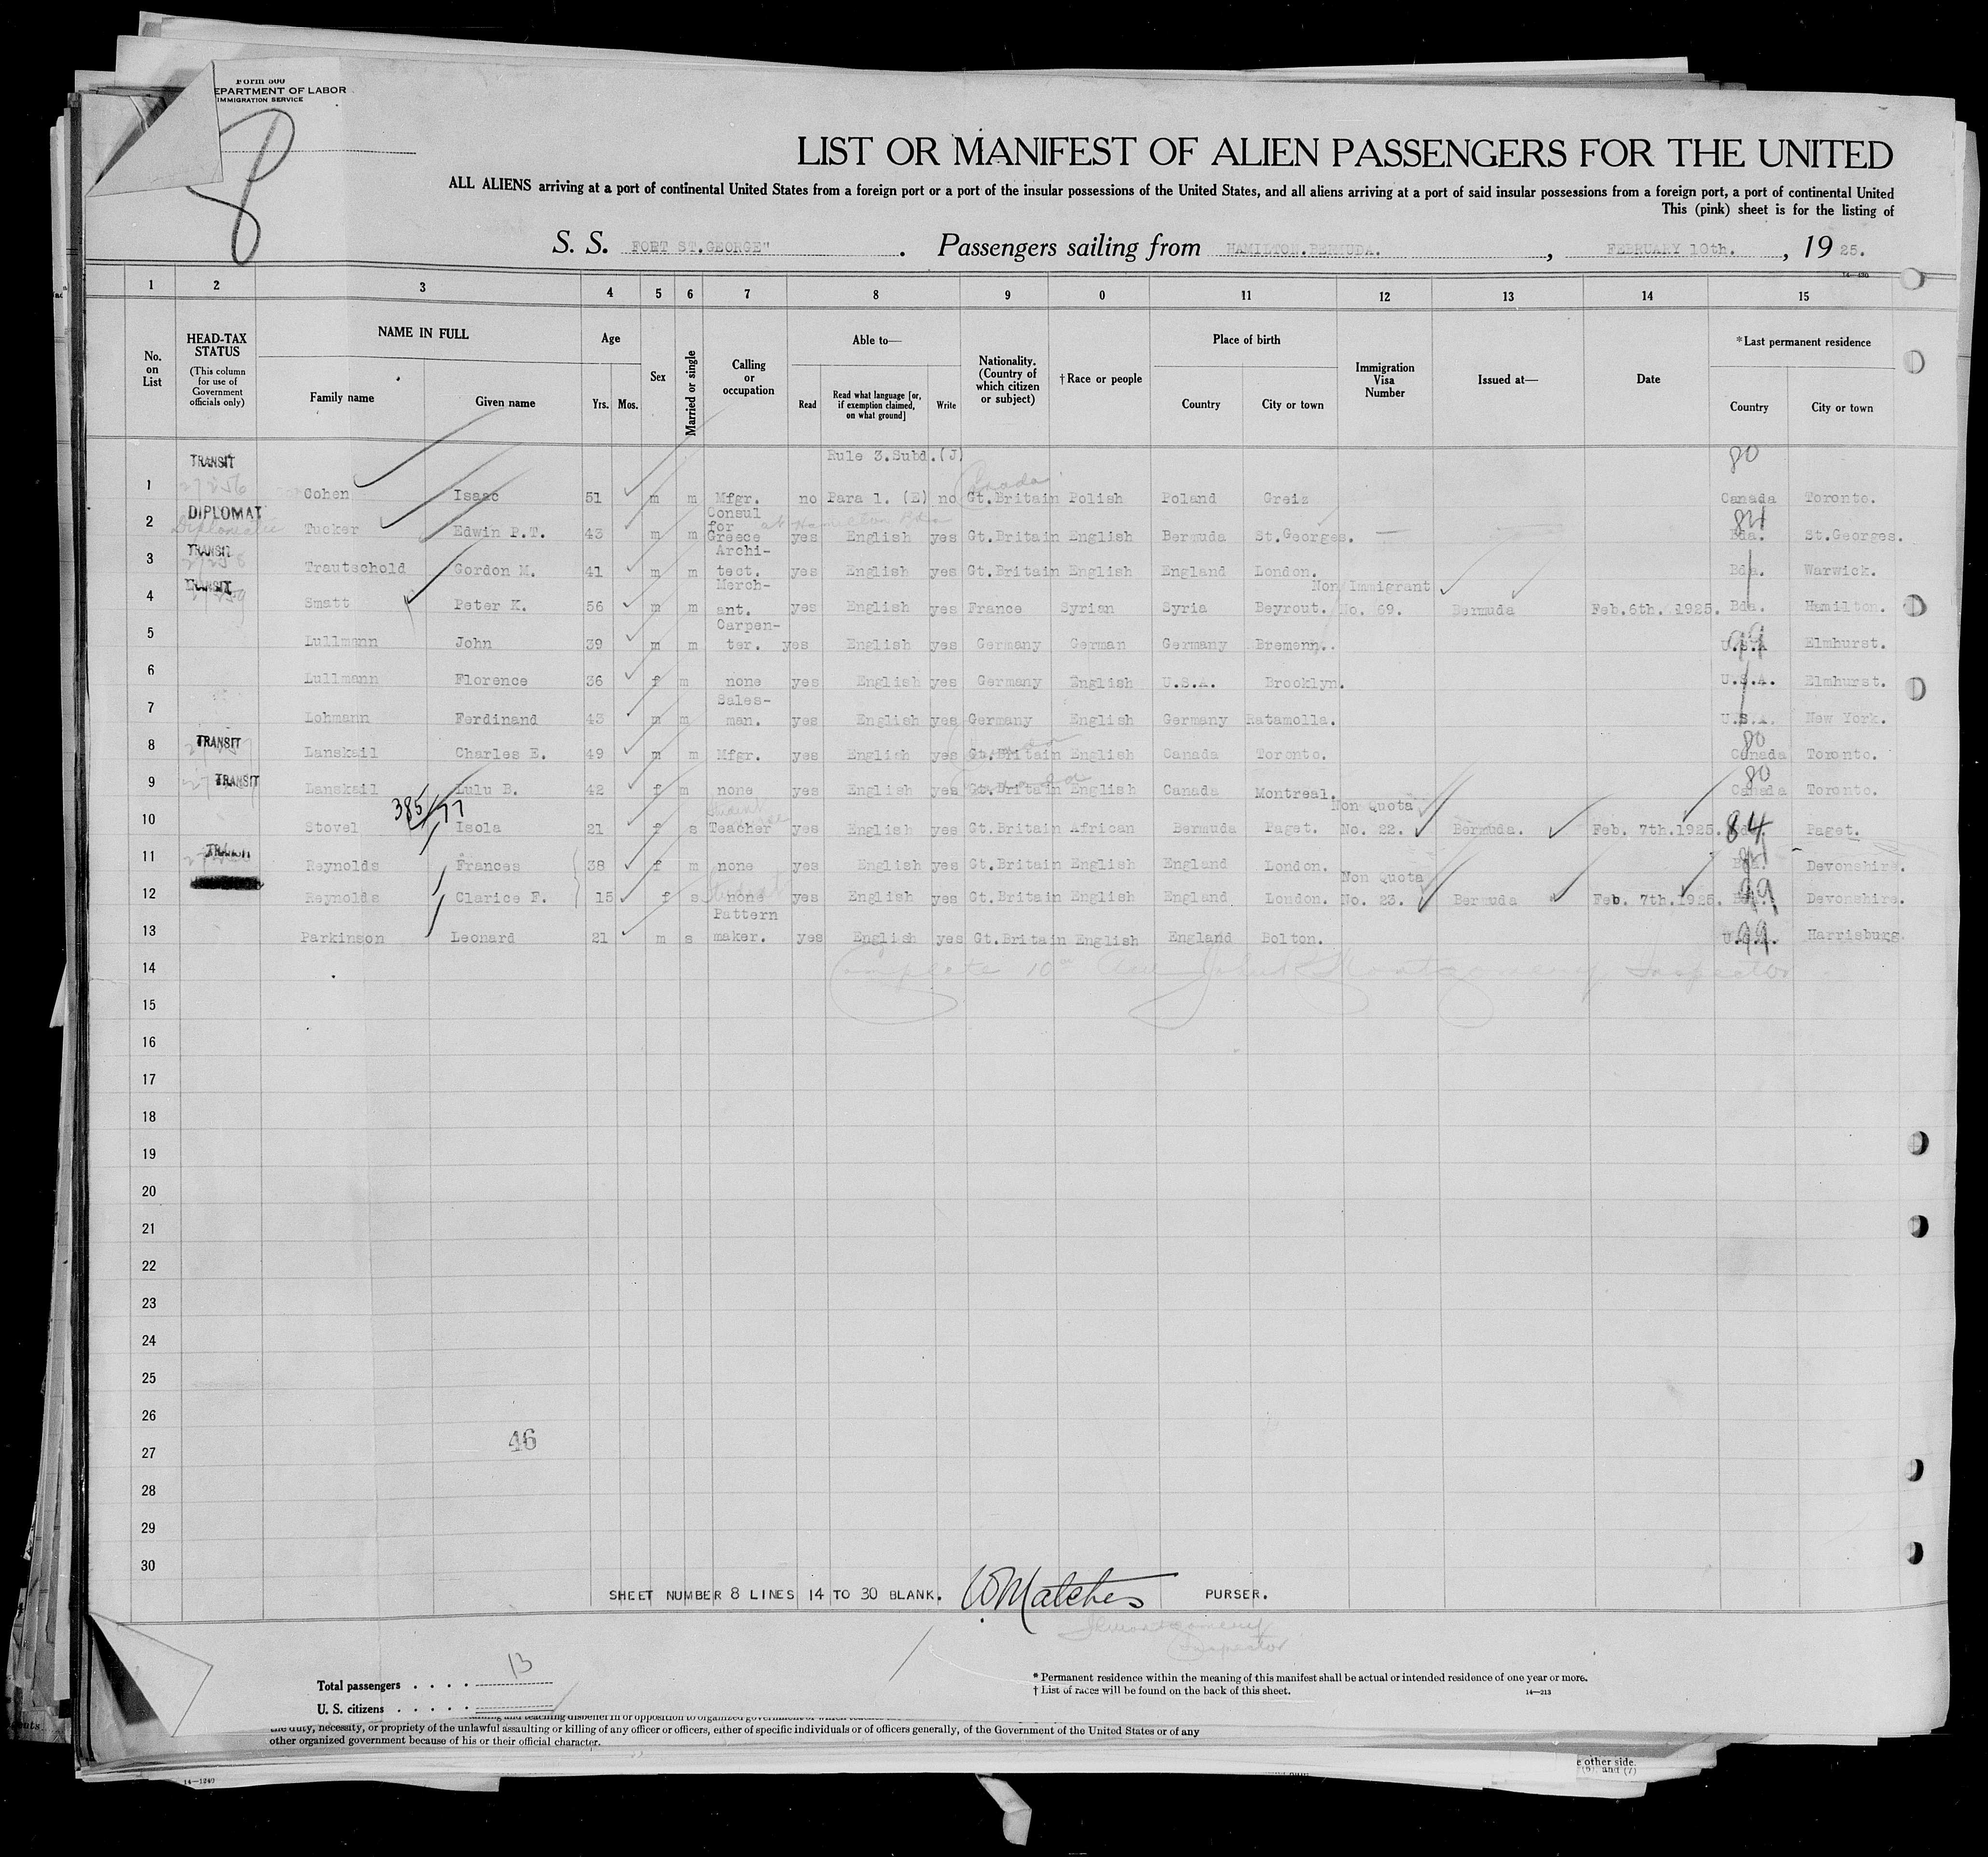 Form 500
EPARTMENT OF LABOR
IMMIGRATION SERVICE
8
LIST OR MANIFEST OF ALIEN PASSENGERS FOR THE UNITED
ALL ALIENS arriving at a port of continental United States from a foreign port or a port of the insular possessions of the United States, and all aliens arriving at a port of said insular possessions from a foreign port, a port of continental United
This (pink) sheet is for the listing of
S. S. FORT ST.GEORGE" . Passengers sailing from HAMILTON.BERMUDA. , FEBRUARY 10th. , 19 25.
14—430
1 2 3 4 5 6 7 8 9 0 11 12 13 14 15
No. on List HEAD-TAX STATUS (This column for use of Government officials only) NAME IN FULL Family name Given name Age Yrs. Mos. Sex Married or single Calling or occupation Able to— Read Read what language [or, if exemption claimed, on what ground] Write Nationality. (Country of which citizen or subject) †Race or people Place of birth Country City or town Immigration Visa Number Issued at— Date *Last permanent residence Country City or town
TRANSIT Rule 3.Subd.(J) Canada 80
1 Cohen Isaac 51 m m Mfgr. no Para 1. (E) no Gt.Britain Polish Poland Greiz Canada Toronto.
DIPLOMAT Consul 84
2 Diplomatic Tucker Edwin P.T. 43 m m for Greece at Hamilton Bda yes English yes Gt.Britain English Bermuda St.Georges. — Bda. St.Georges.
TRANSIT Archi-
3 Trautschold Gordon M. 41 m m tect. yes English yes Gt.Britain English England London. Bda. Warwick.
TRANSIT Merch- Non Immigrant
4 Smatt Peter K. 56 m m ant. yes English yes France Syrian Syria Beyrout. No. 69. Bermuda Feb.6th. 1925. Bda. Hamilton.
Carpen- 99
5 Lullmann John 39 m m ter. yes English yes Germany German Germany Bremenn. U.S.A Elmhurst.
6 Lullmann Florence 36 f m none yes English yes Germany English U.S.A. Brooklyn. U.S.A. Elmhurst.
Sales-
7 Lohmann Ferdinand 43 m m man. yes English yes Germany English Germany Ratamolla. U.S.A. New York.
TRANSIT 80
8 Lanskail Charles E. 49 m m Mfgr. yes English yes Gt.Britain English Canada Toronto. Canada Toronto.
TRANSIT Canada 80
9 Lanskail Lulu B. 42 f m none yes English yes Gt.Britain English Canada Montreal. Canada Toronto.
385/77 Student Non Quota
10 Stovel Isola 21 f s Teacher yes English yes Gt.Britain African Bermuda Paget. No. 22. Bermuda. Feb. 7th.1925. 84 Paget.
TRANSIT 84
11 Reynolds Frances 38 f m none yes English yes Gt.Britain English England London. Bda. Devonshire.
Student Non Quota
12 Reynolds Clarice F. 15 f s none yes English yes Gt.Britain English England London. No. 23. Bermuda Feb. 7th.1925. 99 Devonshire.
Pattern
13 Parkinson Leonard 21 m s maker. yes English yes Gt.Britain English England Bolton. U.S.A. 99 Harrisburg.
14 Complete 10 John Montgomery Inspector
15
16
17
18
19
20
21
22
23
24
25
26
46
27
28
29
30
SHEET NUMBER 8 LINES 14 TO 30 BLANK. W Matches PURSER.
Montgomery
Inspector
Total passengers . . . . 13
U. S. citizens . . . . .
* Permanent residence within the meaning of this manifest shall be actual or intended residence of one year or more.
† List of races will be found on the back of this sheet. 14—213
the duty, necessity, or propriety of the unlawful assaulting or killing of any officer or officers, either of specific individuals or of officers generally, of the Government of the United States or of any
other organized government because of his or their official character.
14—1240
e other side.
(6), and (7)